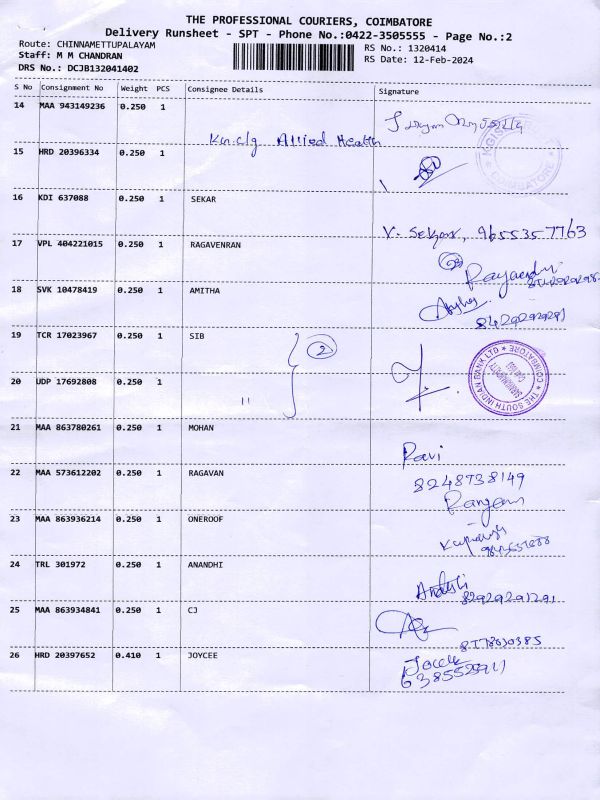 THE PROFESSIONAL COURIERS, COIMBATORE
Delivery Runsheet - SPT - Phone No.:0422-3505555 - Page No.:2
Route: CHINNAMETTUPALAYAM RS No.: 1320414
Staff: M M CHANDRAN RS Date: 12-Feb-2024
DRS No.: DCJB132041402
S No Consignment No Weight PCS Consignee Details Signature
14 MAA 943149236 0.250 1
Kmc/g Allied Health
15 HRD 20396334 0.250 1
COIMBATORE
16 KDI 637088 0.250 1 SEKAR
V. Sekar, 9655357763
17 VPL 404221015 0.250 1 RAGAVENRAN
18 SVK 10478419 0.250 1 AMITHA
19 TCR 17023967 0.250 1 SIB
2
THE SOUTH INDIAN BANK LTD ★ COIMBATORE ★
20 UDP 17692808 0.250 1 "
21 MAA 863780261 0.250 1 MOHAN
Ravi
8248738149
22 MAA 573612202 0.250 1 RAGAVAN
23 MAA 863936214 0.250 1 ONEROOF
24 TRL 301972 0.250 1 ANANDHI
25 MAA 863934841 0.250 1 CJ
26 HRD 20397652 0.410 1 JOYCEE